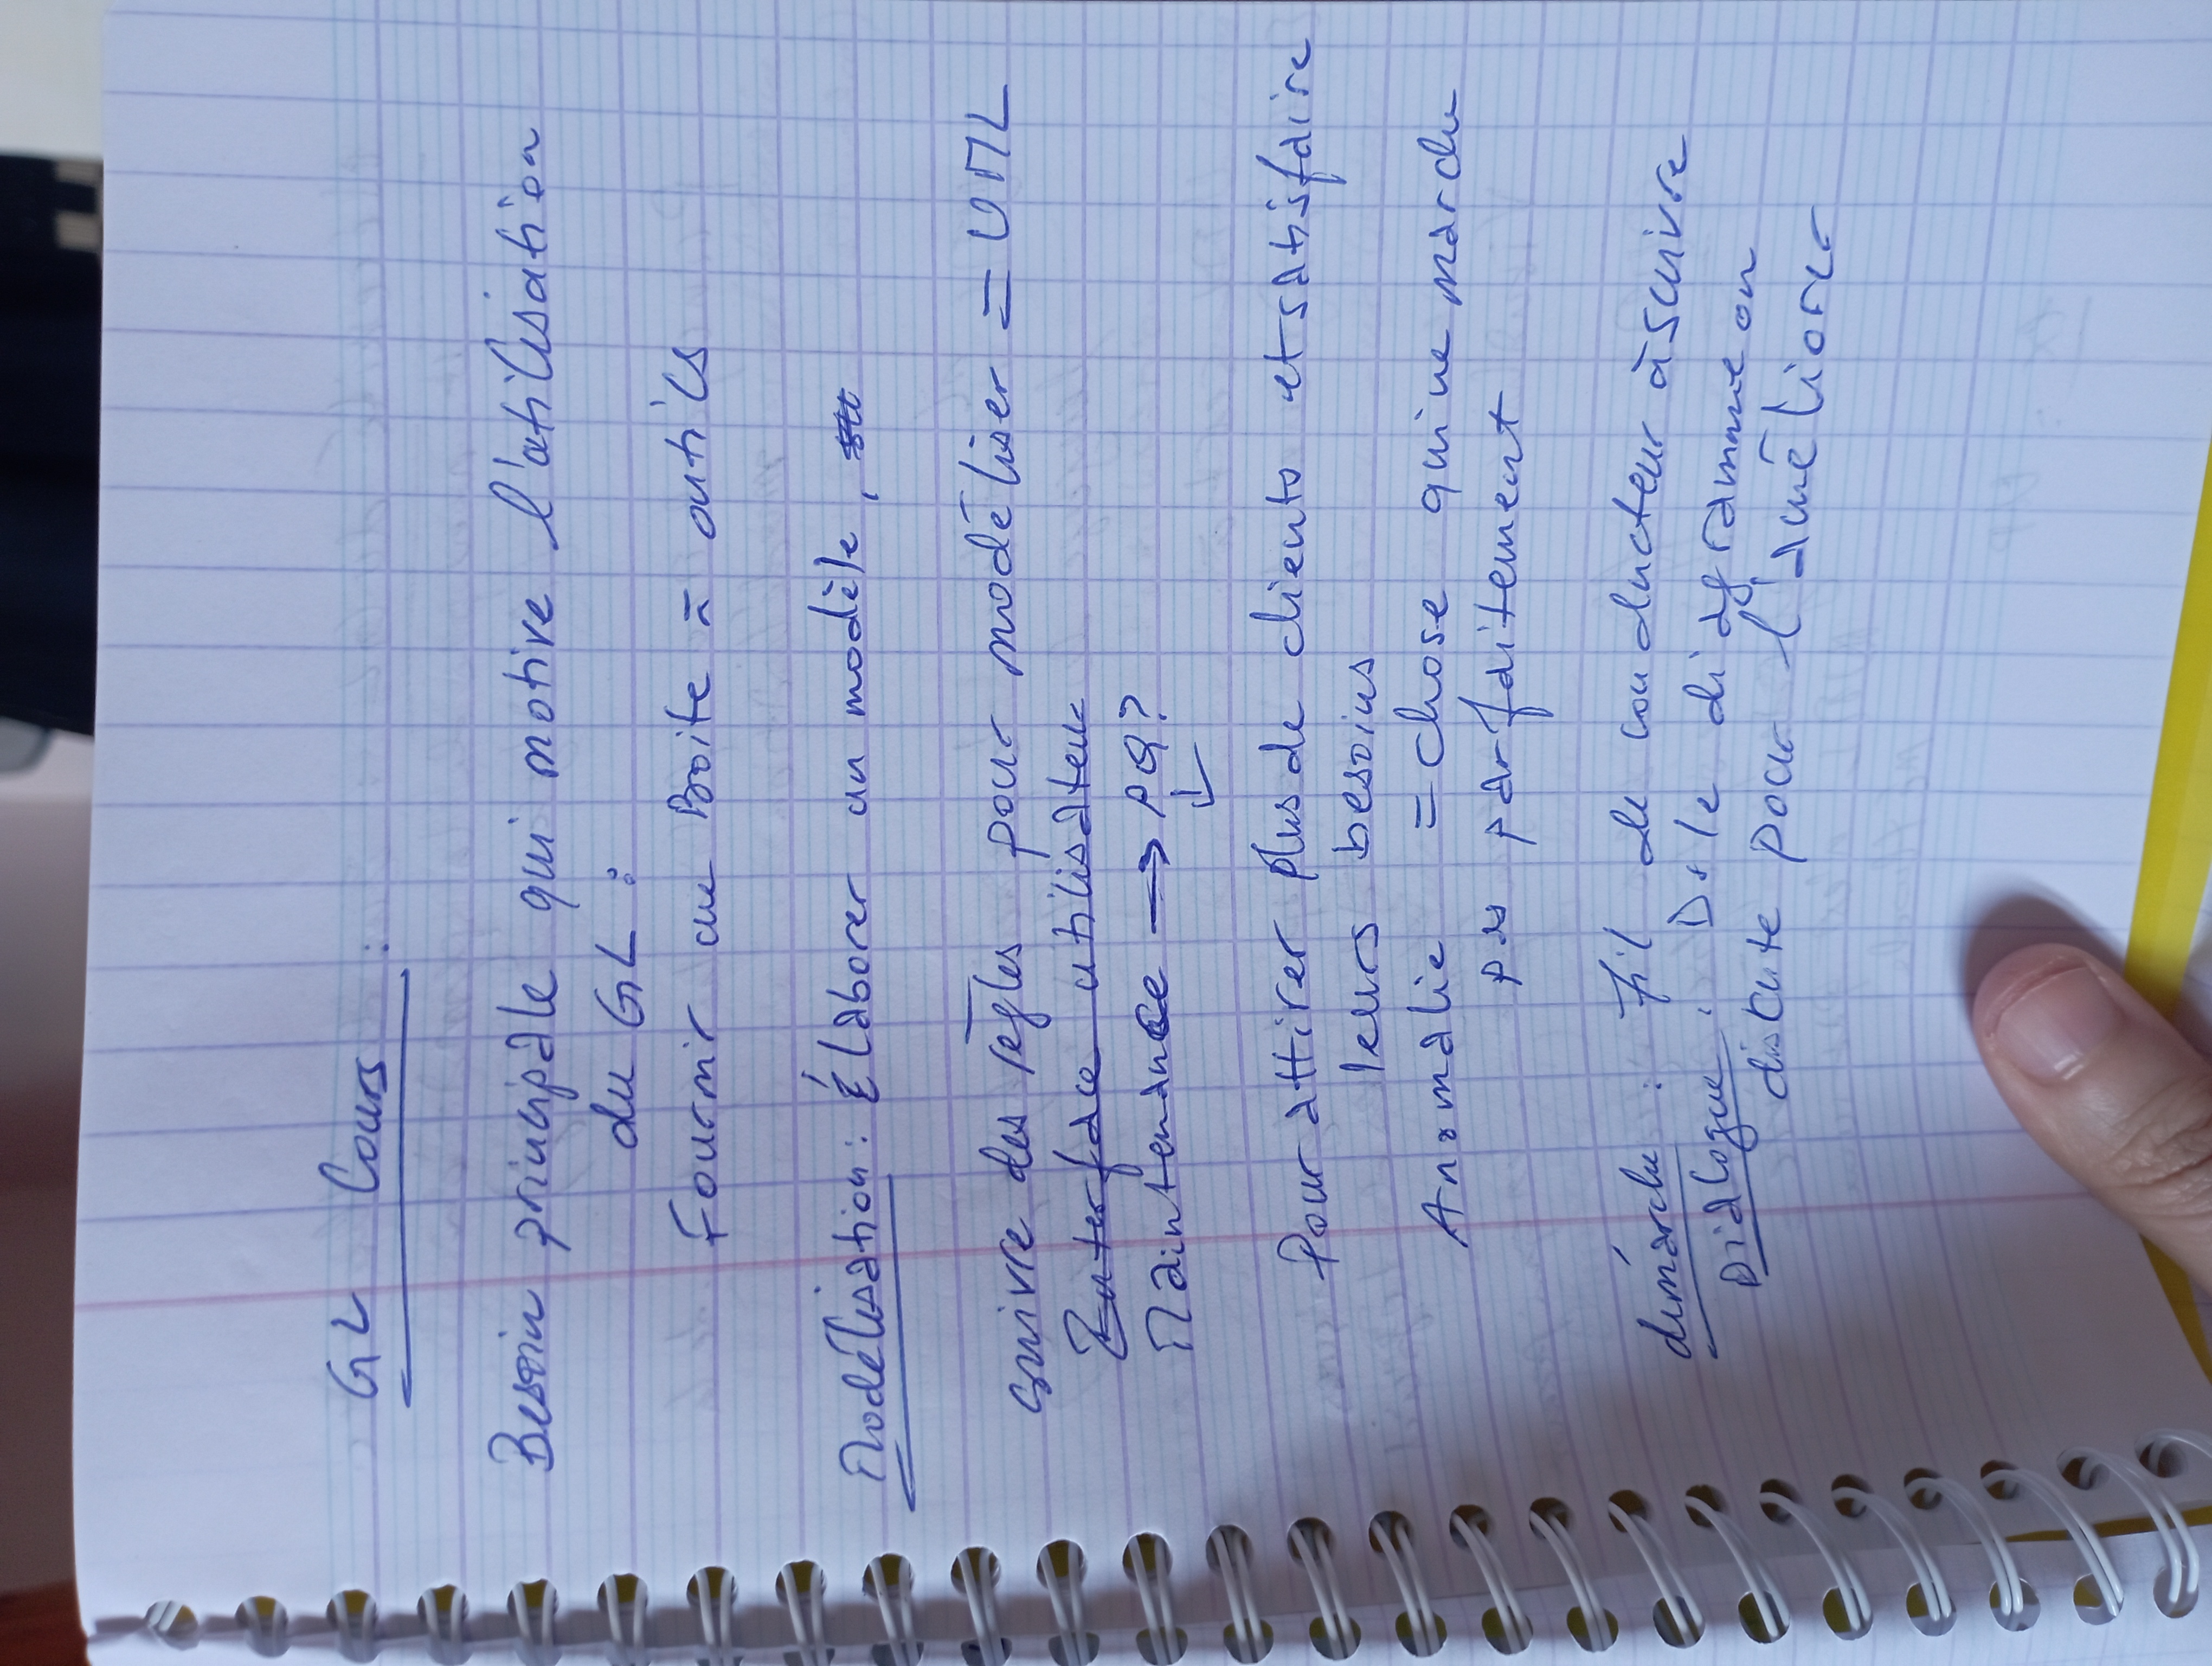 GL Cours :
Besoin principale qui motive l'utilisation
du GL :
Fournir une Boite = outils
Modélisation : Élaborer un modèle,
suivre des règles pour modéliser = UML
Interface utilisateur
Maintenance → PQ?
↓
Pour attirer plus de clients et satisfaire
leurs besoins
Anomalie = chose qui ne marche
pas parfaitement
démarche : Fil de conducteur à suivre
Dialogue : Ds le diagramme on
discute pour l'améliorer